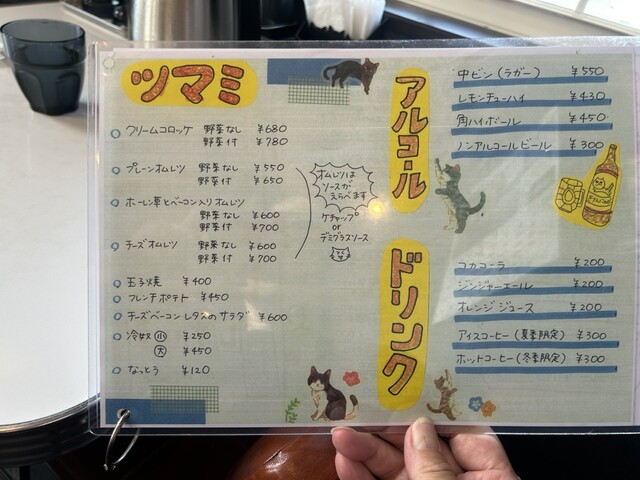 ツマミ
クリームコロッケ 野菜なし ¥680
野菜付 ¥780
プレーンオムレツ 野菜なし ¥550
野菜付 ¥650
ホーレン草とベーコン入りオムレツ
野菜なし ¥600
野菜付 ¥700
チーズオムレツ 野菜なし ¥600
野菜付 ¥700
オムレツは
ソースが
えらべます
ケチャップ
or
デミグラスソース
玉子焼 ¥400
フレンチポテト ¥450
チーズベーコンレタスのサラダ ¥600
冷奴 小 ¥250
大 ¥450
なっとう ¥120
アルコール
中ビン(ラガー) ¥550
レモンチューハイ ¥430
角ハイボール ¥450
ノンアルコールビール ¥300
ドリンク
コカコーラ ¥200
ジンジャーエール ¥200
オレンジジュース ¥200
アイスコーヒー(夏季限定) ¥300
ホットコーヒー(冬季限定) ¥300